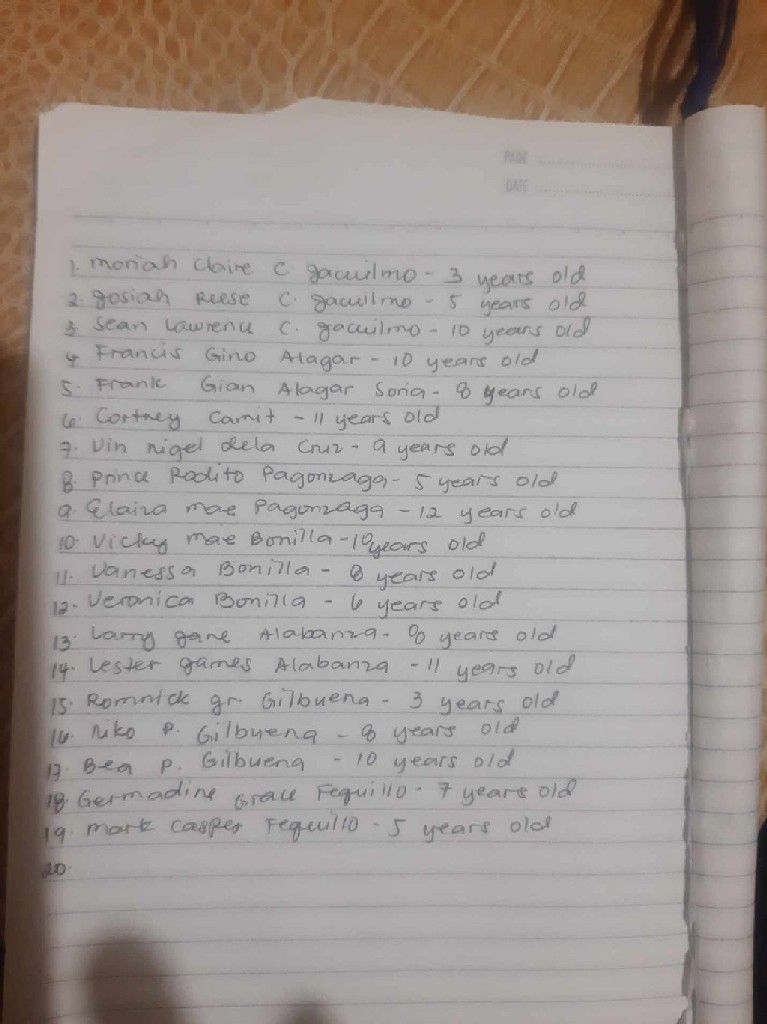 PAGE
DATE
1. Moriah Claire C. Jacuilmo - 3 years old
2. Josiah Reese C. Jacuilmo - 5 years old
3. Sean Lawrence C. Jacuilmo - 10 years old
4. Francis Gino Alagar - 10 years old
5. Frank Gian Alagar Soria - 8 years old
6. Cortney Camit - 11 years old
7. Vin nigel dela Cruz - 9 years old
8. Prince Rodito Pagonzaga - 5 years old
9. Elaiza mae Pagonzaga - 12 years old
10. Vicky mae Bonilla - 10 years old
11. Vanessa Bonilla - 8 years old
12. Veronica Bonilla - 6 years old
13. Larry Jane Alabanza - 8 years old
14. Lester James Alabanza - 11 years old
15. Romnick Jr. Gilbuena - 3 years old
16. Niko P. Gilbuena - 8 years old
17. Bea P. Gilbuena - 10 years old
18. Germadine Grace Fequillo - 7 years old
19. Mark Casper Fequillo - 5 years old
20.